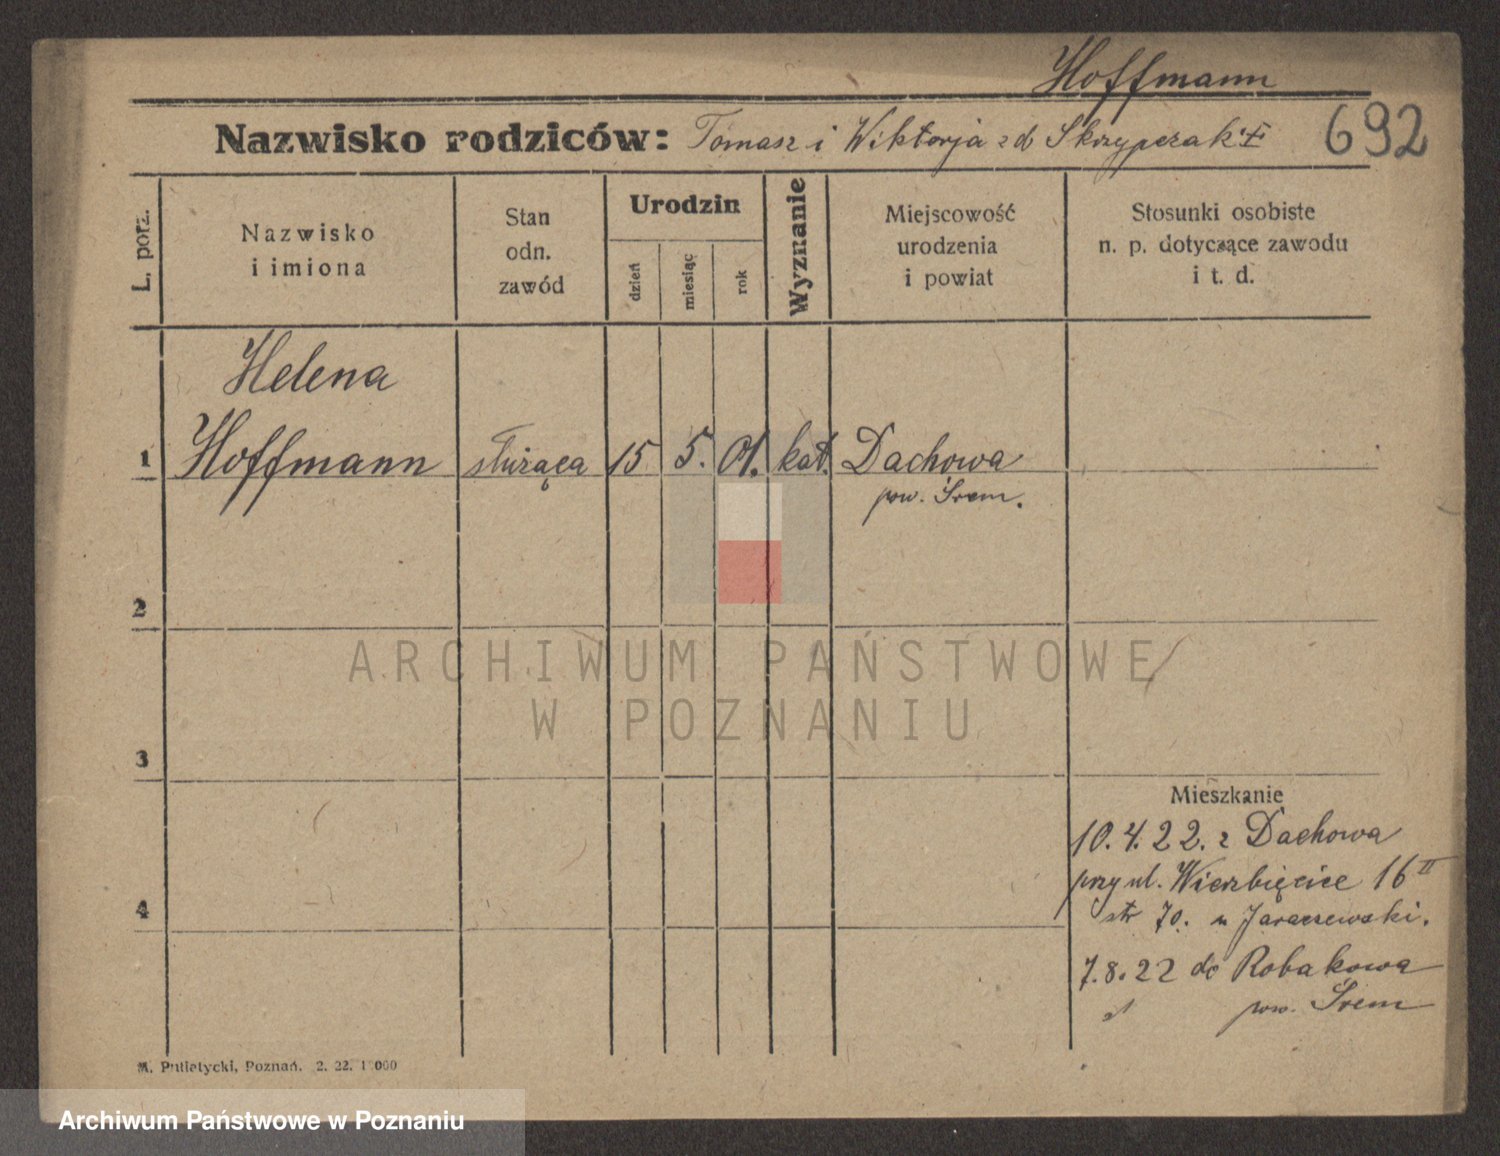 Hoffmann
Nazwisko rodziców: Tomasz i Wiktorja zd Skrzypczak
692
L. porz.
Nazwisko
i imiona
Stan
odn.
zawód
Urodzin
dzień
miesiąc
rok
Wyznanie
Miejscowość
urodzenia
i powiat
Stosunki osobiste
n. p. dotyczące zawodu
i t. d.
Helena
1 Hoffmann służąca 15 5. 01. kat. Dachowa
pow. Śrem.
2
ARCHIWUM PAŃSTWOWE
W POZNANIU
3
Mieszkanie
10.4.22. z Dachowa
przy ul. Wierzbięcice 16 II
str 70. u Jaraczewski.
4
7.8.22 do Robakowa
pow. Śrem
M. Putiatycki, Poznań. 2. 22. 1000
Archiwum Państwowe w Poznaniu